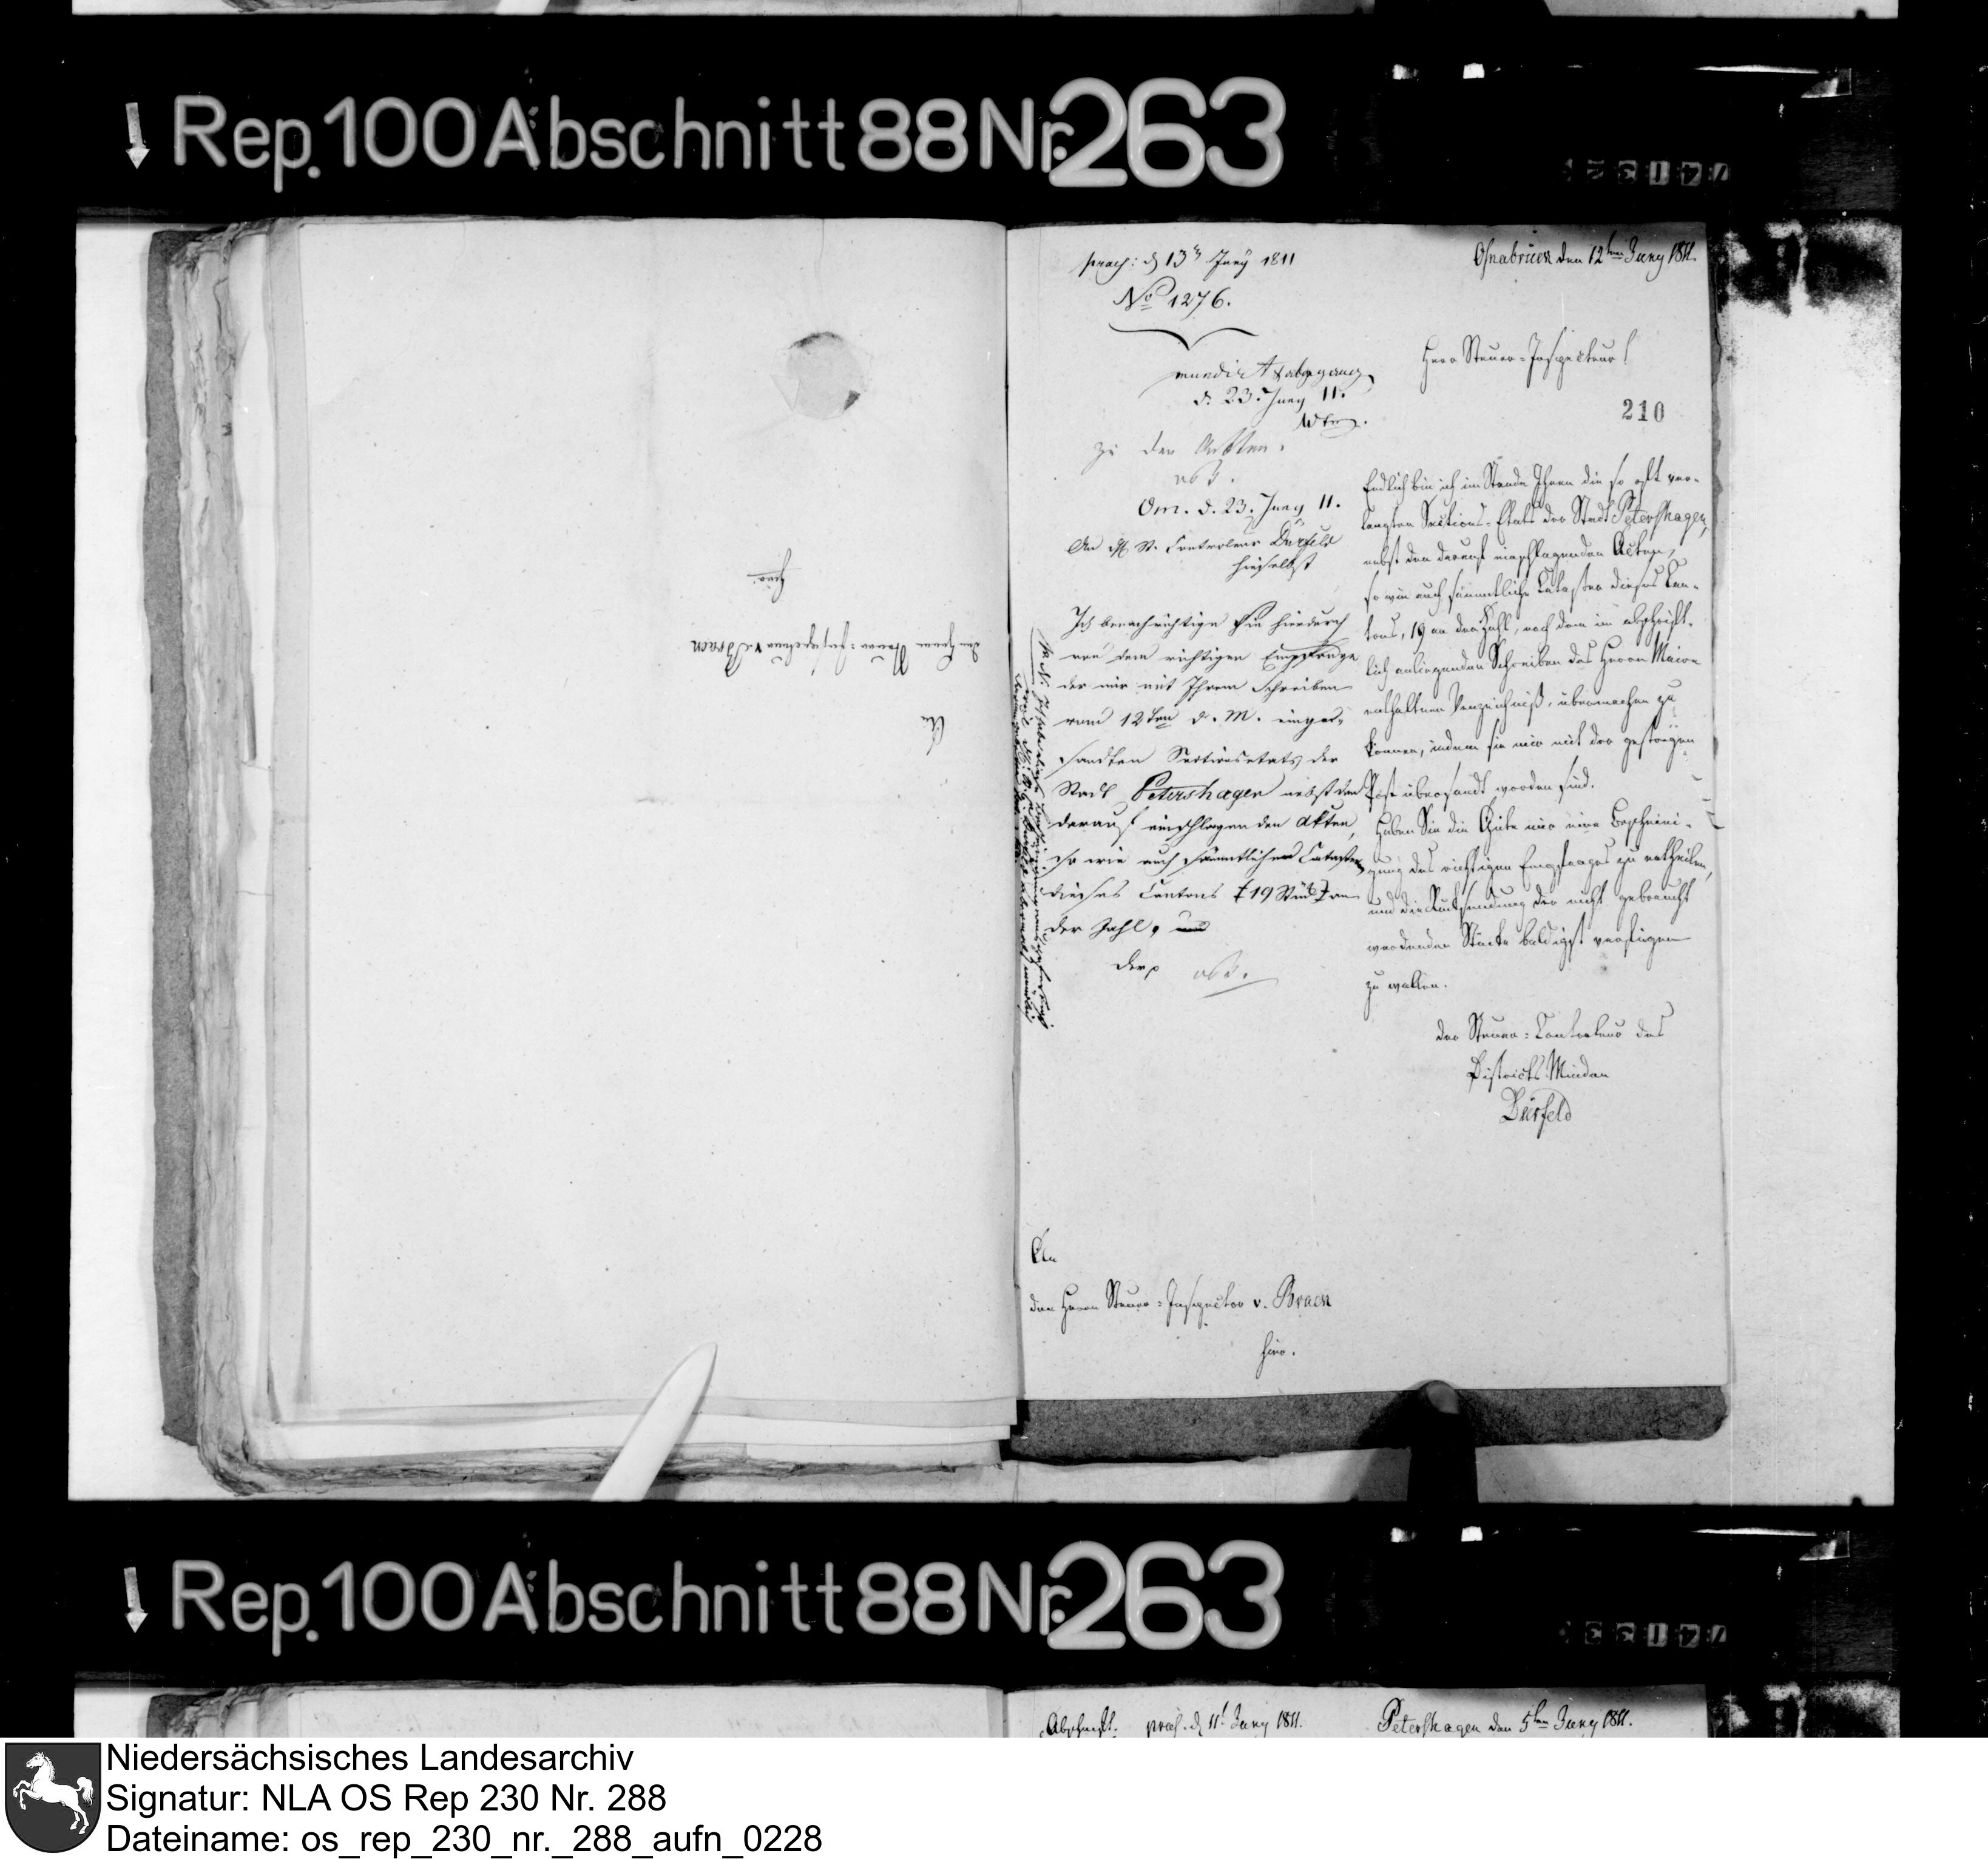 Rep. 100 Abschnitt 88 Nr. 263
An
den Herrn Steuer-Inspecteur v. Braen
hier.
praes: d 13t Juny 1811
No 1276.
mundirt & abgegang.
d. 23. Juny 11.
zu den Ackten.
Om. d. 23. Juny 11.
An H. St. Controleur Dürfeld
hieselbst
Ich benachrichtige Sie hierdurch
von dem richtigen Empfange
der mir mit Ihrem Schreiben
vom 12ten d. M. einge-
sandten Sectionsetats der
Stadt Petershagen nebst den
darauf einschlagenden Akten,
so wie auch sämmtlichen Cataster
dieses Cantons 19 Stück an
der Zahl, und
Osnabrück den 12ten Juny 1811.
Herr Steuer-Inspecteur!
210
Endlich bin ich im Stande Ihnen die so oft ver-
langten Sections-Etats der Stadt Petershagen,
nebst den darauf einschlagenden Acten,
so wie auch sämmtliche Cataster dieses Can-
tons, 19 an der Zahl, nach dem im abschrift-
lich anliegenden Schreiben des Herrn Maire
enthaltnen Verzeichniß, übermachen zu
können, indem sie mir mit der gestrigen
Post übersandt worden sind.
Haben Sie die Güte mir eine Bescheini-
gung des richtigen Empfanges zu ertheilen,
und die Rücksendung der nicht gebraucht
werdenden Stücke baldigst verfügen
zu wollen.
der Steuer-Controleur des
Districts Minden
Dürfeld
An
den Herrn Steuer-Inspector v. Braen
hier.
Rep. 100 Abschnitt 88 Nr. 263
Abschrift. praes. d 11t Juny 1811. Petershagen den 5ten Juny 1811.
Niedersächsisches Landesarchiv
Signatur: NLA OS Rep 230 Nr. 288
Dateiname: os_rep_230_nr._288_aufn_0228